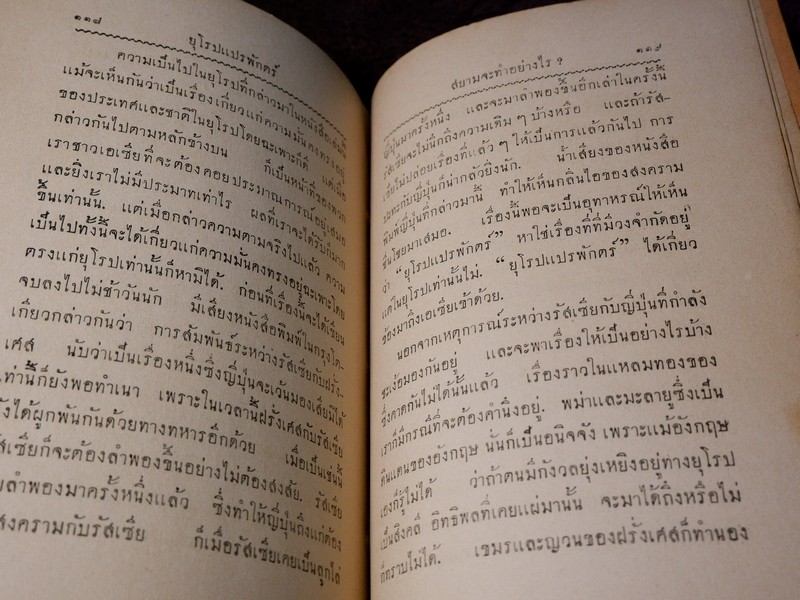 ๑๑๘
ยุโรปแปรพักตร์
ความเป็นไปในยุโรปที่กล่าวมาในหนังสือเล่มนี้
แม้จะเห็นกันว่าเป็นเรื่องเกี่ยวแก่ความมั่นคงทรงอยู่
ของประเทศและชาติในยุโรปโดยฉะเพาะก็ดี แต่เมื่อ
กล่าวกันไปตามหลักข้างบน ก็เป็นหน้าที่ของพวก
เราชาวเอเซียที่จะต้องคอยประมาณการณ์อยู่เสมอ
และยิ่งเราไม่มีประมาทเท่าไร ผลที่เราจะได้รับก็มาก
ขึ้นเท่านั้น. แต่เมื่อกล่าวความตามจริงไปแล้ว ความ
เป็นไปทั้งนี้จะได้เกี่ยวแก่ความมั่นคงทรงอยู่ฉะเพาะโดย
ตรงแก่ยุโรปเท่านั้นก็หามิได้. ก่อนที่เรื่องนี้จะได้เขียน
จบลงไปไม่ช้าวันนัก มีเสียงหนังสือพิมพ์ในกรุงโต-
เกียวกล่าวกันว่า การสัมพันธ์ระหว่างรัสเซียกับฝรั่ง-
เศส นับว่าเป็นเรื่องหนึ่งซึ่งญี่ปุ่นจะเว้นมองเสียมิได้
เท่านี้ก็ยังพอทำเนา เพราะในเวลานี้ฝรั่งเศสกับรัสเซีย
ได้ผูกพันกันด้วยทางทหารอีกด้วย เมื่อเป็นเช่นนี้
รัสเซียก็จะต้องลำพองขึ้นอย่างไม่ต้องสงสัย. รัสเซีย
ลำพองมาครั้งหนึ่งแล้ว ซึ่งทำให้ญี่ปุ่นถึงแก่ต้อง
สงครามกับรัสเซีย ก็เมื่อรัสเซียเคยเป็นลูกไล่
สยามจะทำอย่างไร ?
๑๑๙
ญี่ปุ่นมาครั้งหนึ่ง และจะมาลำพองขึ้นอีกเล่าในครั้งนี้
รัสเซียจะไม่นึกถึงความเดิม ๆ บ้างหรือ และถ้ารัส-
เซียไม่ปล่อยเรื่องที่แล้ว ๆ ให้เป็นการแล้วกันไป การ
ปะทะกับญี่ปุ่นก็น่ากลัวยิ่งนัก. น้ำเสียงของหนังสือ
พิมพ์ญี่ปุ่นที่กล่าวมานี้ ทำให้เห็นกลิ่นไอของสงคราม
ขึ้นโชยมาเสมอ. เรื่องนี้พอจะเป็นอุทาหรณ์ให้เห็น
ว่า “ยุโรปแปรพักตร์” หาใช่เรื่องที่ที่มีวงจำกัดอยู่
แต่ในยุโรปเท่านั้นไม่. “ยุโรปแปรพักตร์” ได้เกี่ยว
ข้องมาถึงเอเซียเข้าด้วย.
นอกจากเหตุการณ์ระหว่างรัสเซียกับญี่ปุ่นที่กำลัง
ชะเง้อมองกันอยู่ และจะพาเรื่องให้เป็นอย่างไรบ้าง
ซึ่งคาดกันไม่ได้นั้นแล้ว เรื่องราวในแหลมทองของ
เราก็มีกรณีที่จะต้องคำนึงอยู่. พม่าและมะลายูซึ่งเป็น
ดินแดนของอังกฤษ นั่นก็เป็นอนิจจัง เพราะแม้อังกฤษ
เองก็รู้ไม่ได้ ว่าถ้าตนมีกังวลยุ่งเหยิงอยู่ทางยุโรป
เป็นสิ่งคลี่ อิทธิพลที่เคยแผ่มานั้น จะมาได้ถึงหรือไม่
ก็ทราบไม่ได้. เขมรและญวนของฝรั่งเศสก็ทำนอง